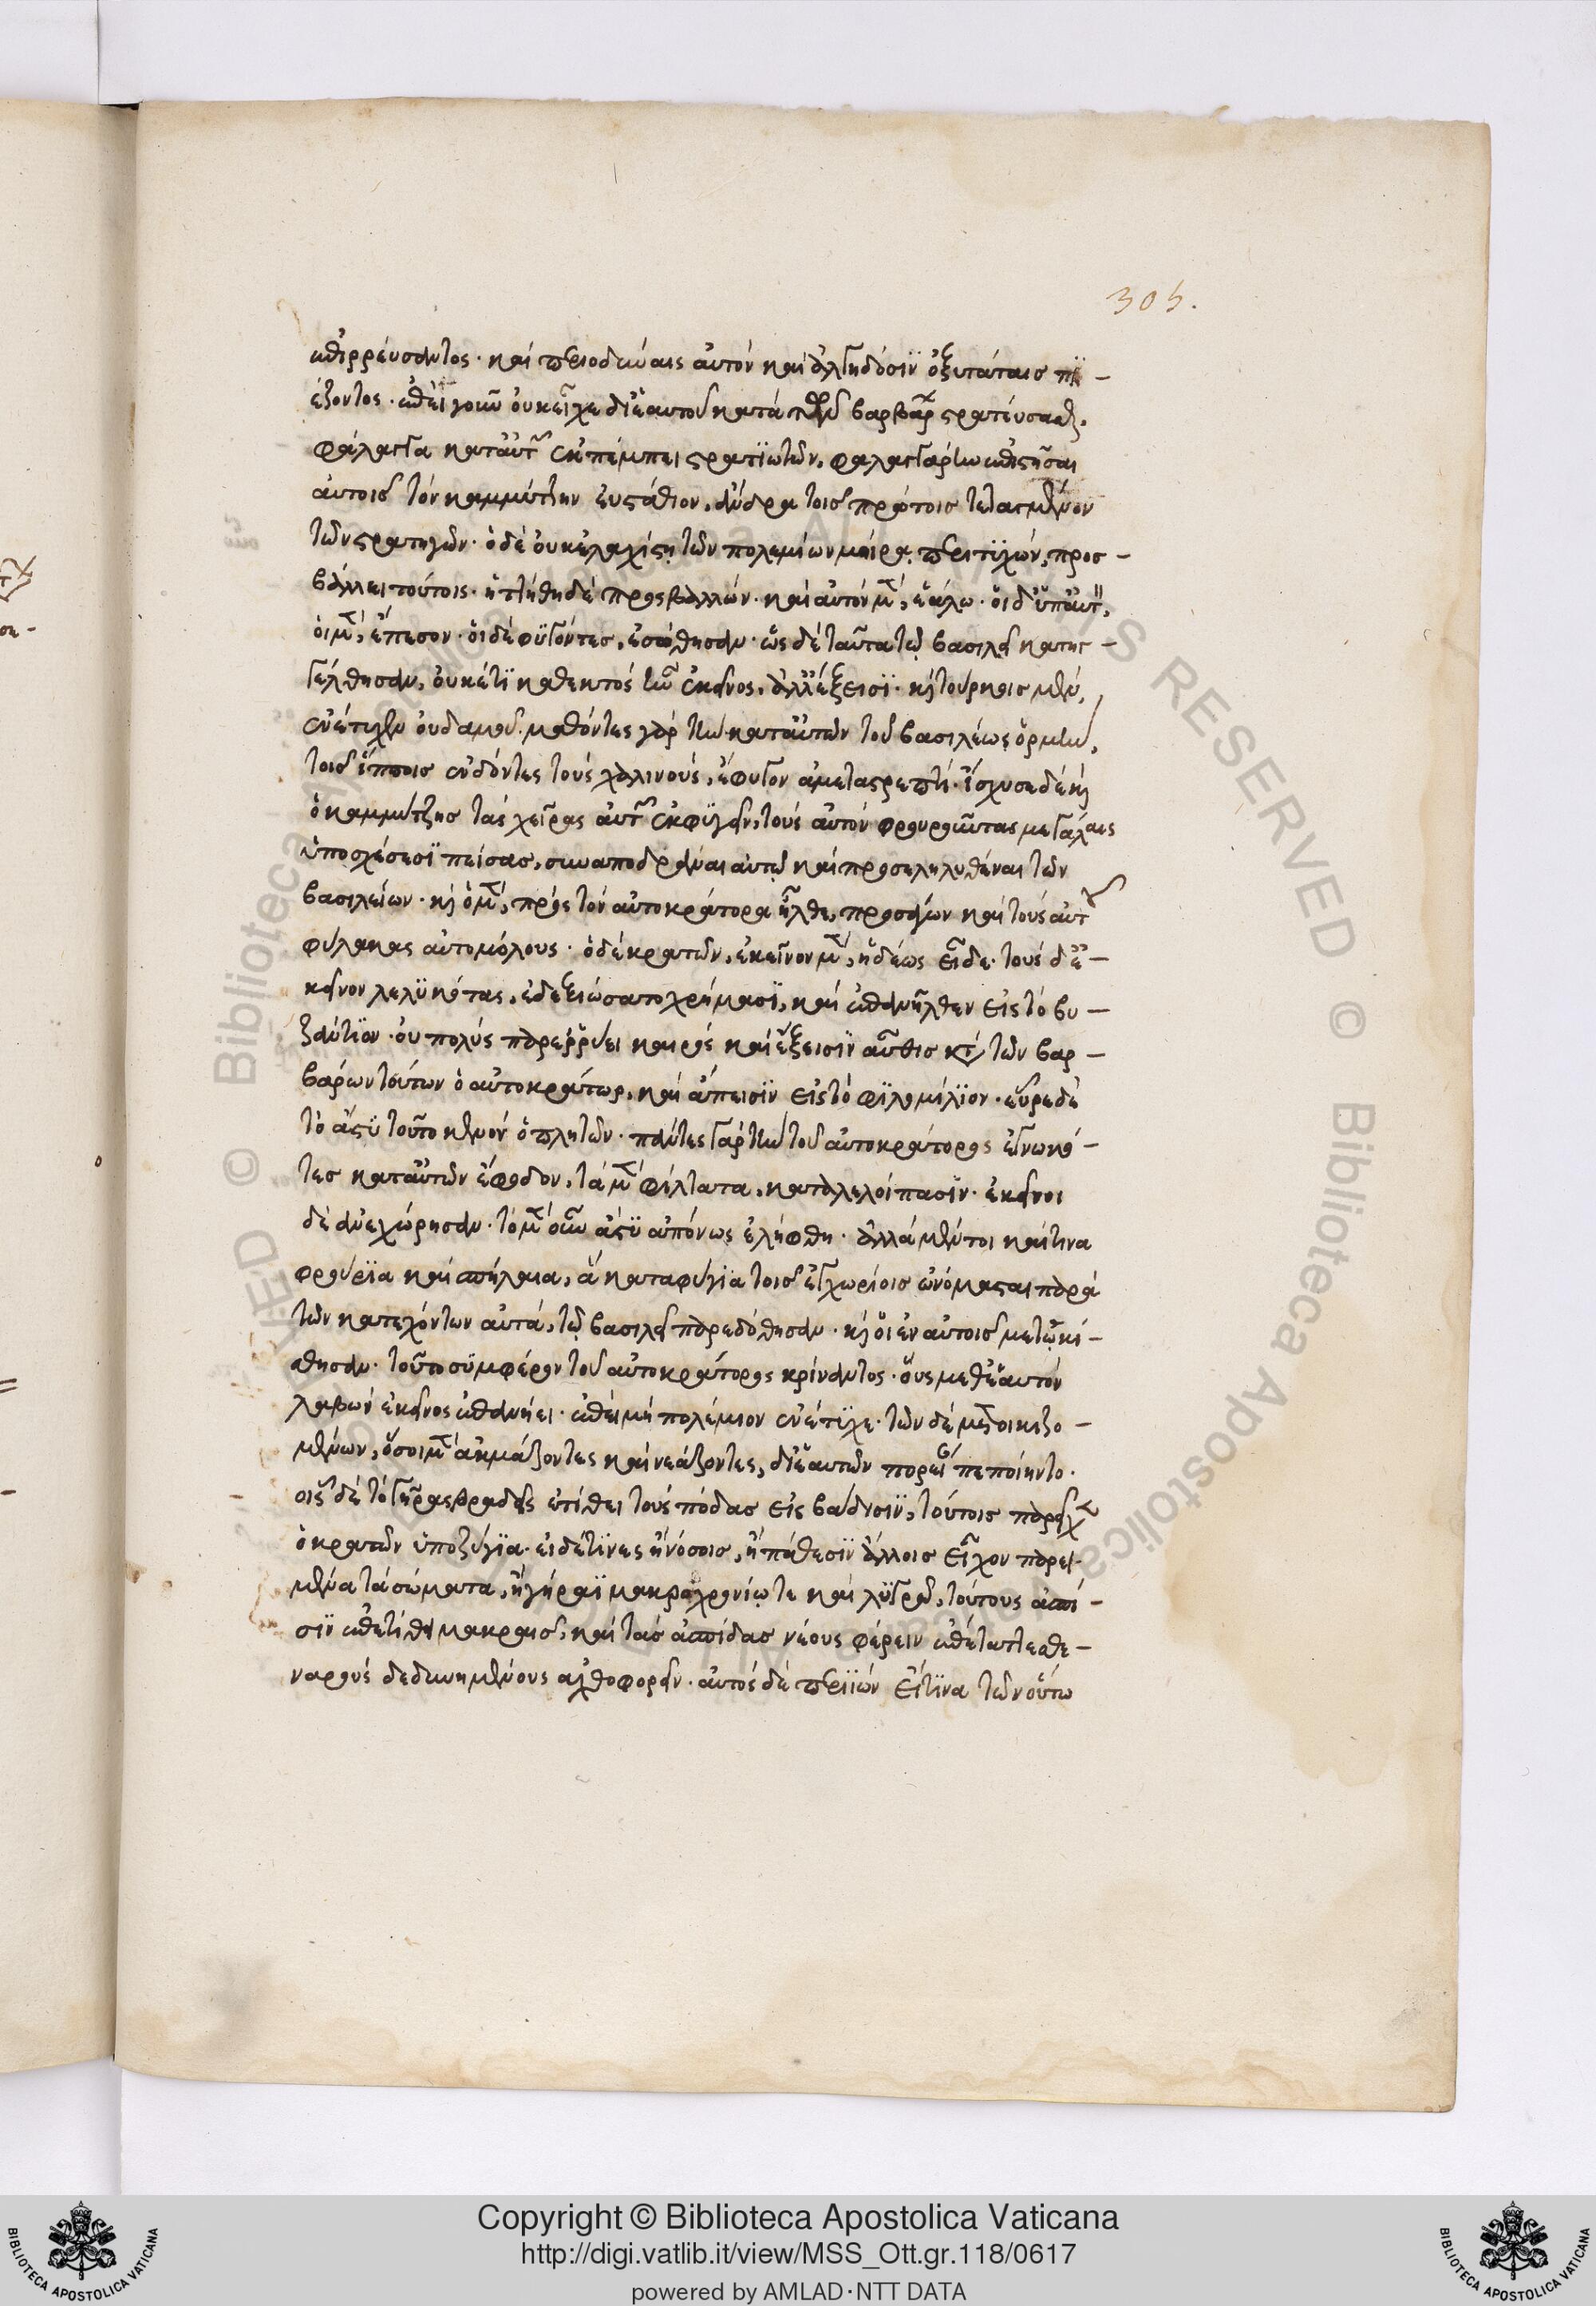 305.
ἐπιρρεύσαντος· καὶ περιοδυνίαις αὐτὸν καὶ ἀλγηδόσϊν ὀξυτάταις πϊ-
έζοντος. ἐπεὶ γοῦν οὐκ εἶχε δι' ἑαυτοῦ κατὰ τῶν βαρβάρων στρατεῦσαι,
φάλαγγα κατ' αὐτῶν ἐκπέμπει στρατϊωτῶν, φαλαγγάρχην ἐπιστήσας
αὐτοῖς τὸν καμμύτζην εὐστάθιον, ἄνδρα τοῖς πρώτοις τεταγμένον
τῶν στρατηγῶν· ὁ δὲ οὐκ ἐλαχίστη τῶν πολεμίων μοίρα περιτϋχὼν, προσ-
βάλλει τούτοις· ἡττήθη δὲ προσβαλλὼν· καὶ αὐτὸν μὲν, ἑάλω· οἱ δ' ὑπ' αὐτὸν,
οἱ μὲν, ἔπεσον· οἱ δὲ φϋγόντες, ἐσώθησαν· ὡς δὲ ταῦτα τῷ βασιλεῖ κατηγ-
γέλθησαν, οὐκέτϊ καθεκτὸς ἦν ἐκεῖνος, ἀλλ' ἔξεισϊ· καὶ τούρκοις μὲν,
ἐνέτυχεν οὐδαμοῦ. μαθόντες γὰρ τὴν κατ' αὐτῶν τοῦ βασιλέως ὁρμὴν,
τοῖς ἵπποις ἐνδόντες τοὺς χαλινοὺς, ἔφυγον ἀμεταστρεπτί. ἴσχυσε δὲ καὶ
ὁ καμμύτζης τὰς χεῖρας αὐτῶν ἐκφϋγεῖν, τοὺς αὐτὸν φρουροῦντας μεγάλαις
ὑποσχέσεσϊ πείσας, συναποδρᾶναι αὐτῷ καὶ προσεληλυθέναι τῶν
βασιλείων· καὶ ὁ μὲν, πρὸς τὸν αὐτοκράτορα ἦλθε, προσάγων καὶ τοὺς αὐτοῦ
φύλακας αὐτομόλους· ὁ δὲ κρατῶν, ἐκεῖνον μὲν, ἡδέως εἶδε· τοὺς δ' ἐ-
κεῖνον λελϋκότας, ἐδεξιώσατο χρήμασϊ, καὶ ἐπανῆλθεν εἰς τὸ βυ-
ζάντϊον. οὐ πολὺς παρερρύει καιρὸς καὶ ἔξεισϊν αὖθις κατὰ τῶν βαρ-
βάρων τούτων ὁ αὐτοκράτωρ, καὶ ἄπεισϊν εἰς τὸ φϊλομίλϊον· εὗρε δὲ
τὸ ἄστϋ τοῦτο κενὸν ὁπλητῶν· πάντες γὰρ τὴν τοῦ αὐτοκράτορος ἐγνωκό-
τες κατ' αὐτῶν ἔφοδον, τὰ μὲν φίλτατα, καταλελοίπασϊν· ἐκεῖνοι
δὲ ἀνεχώρησαν· τὸ μὲν οὖν ἄστϋ ἀπόνως ἐλήφθη· ἀλλὰ μέντοι καί τινα
φρούρϊα καὶ σπήλαια, ἃ καταφύγϊα τοῖς ἐγχωρίοις ὠνόμασται παρὰ
τῶν κατεχόντων αὐτὰ, τῷ βασιλεῖ παρεδόθησαν· καὶ οἱ ἐν αὐτοῖς μετῳκί-
σθησαν· τοῦτο σϋμφέρον τοῦ αὐτοκράτορος κρίναντος· οὓς μεθ' ἑαυτὸν
λαβὼν ἐκεῖνος ἐπανήει· ἐπεὶ μὴ πολέμιον ἐνέτϋχε· τῶν δὲ μετοικιζο-
μένων, ὅσοι μὲν ἀκμάζοντες καὶ νεάζοντες, δι' ἑαυτῶν πορείαν πεποίηντο·
οἷς δὲ τὸ γῆρας βραδεῖς ἐτίθει τοὺς πόδας εἰς βάδισϊν, τούτοις παρεῖχεν
ὁ κρατῶν ὑποζύγϊα· εἰ δέ τϊνες ἢ νόσοις, ἢ πάθεσϊν ἄλλοις εἶχον παρει-
μένα τὰ σώματα, ἢ γήραϊ μακροχρονίῳ τε καὶ λϋγρῷ, τούτους ἀσπί-
σϊν ἐπετίθει μακραῖς, καὶ τὰς ἀσπίδας νέους φέρειν ἐπέταττε σθε-
ναροὺς δεδυνημένους ἀχθοφορεῖν· αὐτὸς δὲ περιϊὼν εἴ τϊνα τῶν οὕτω